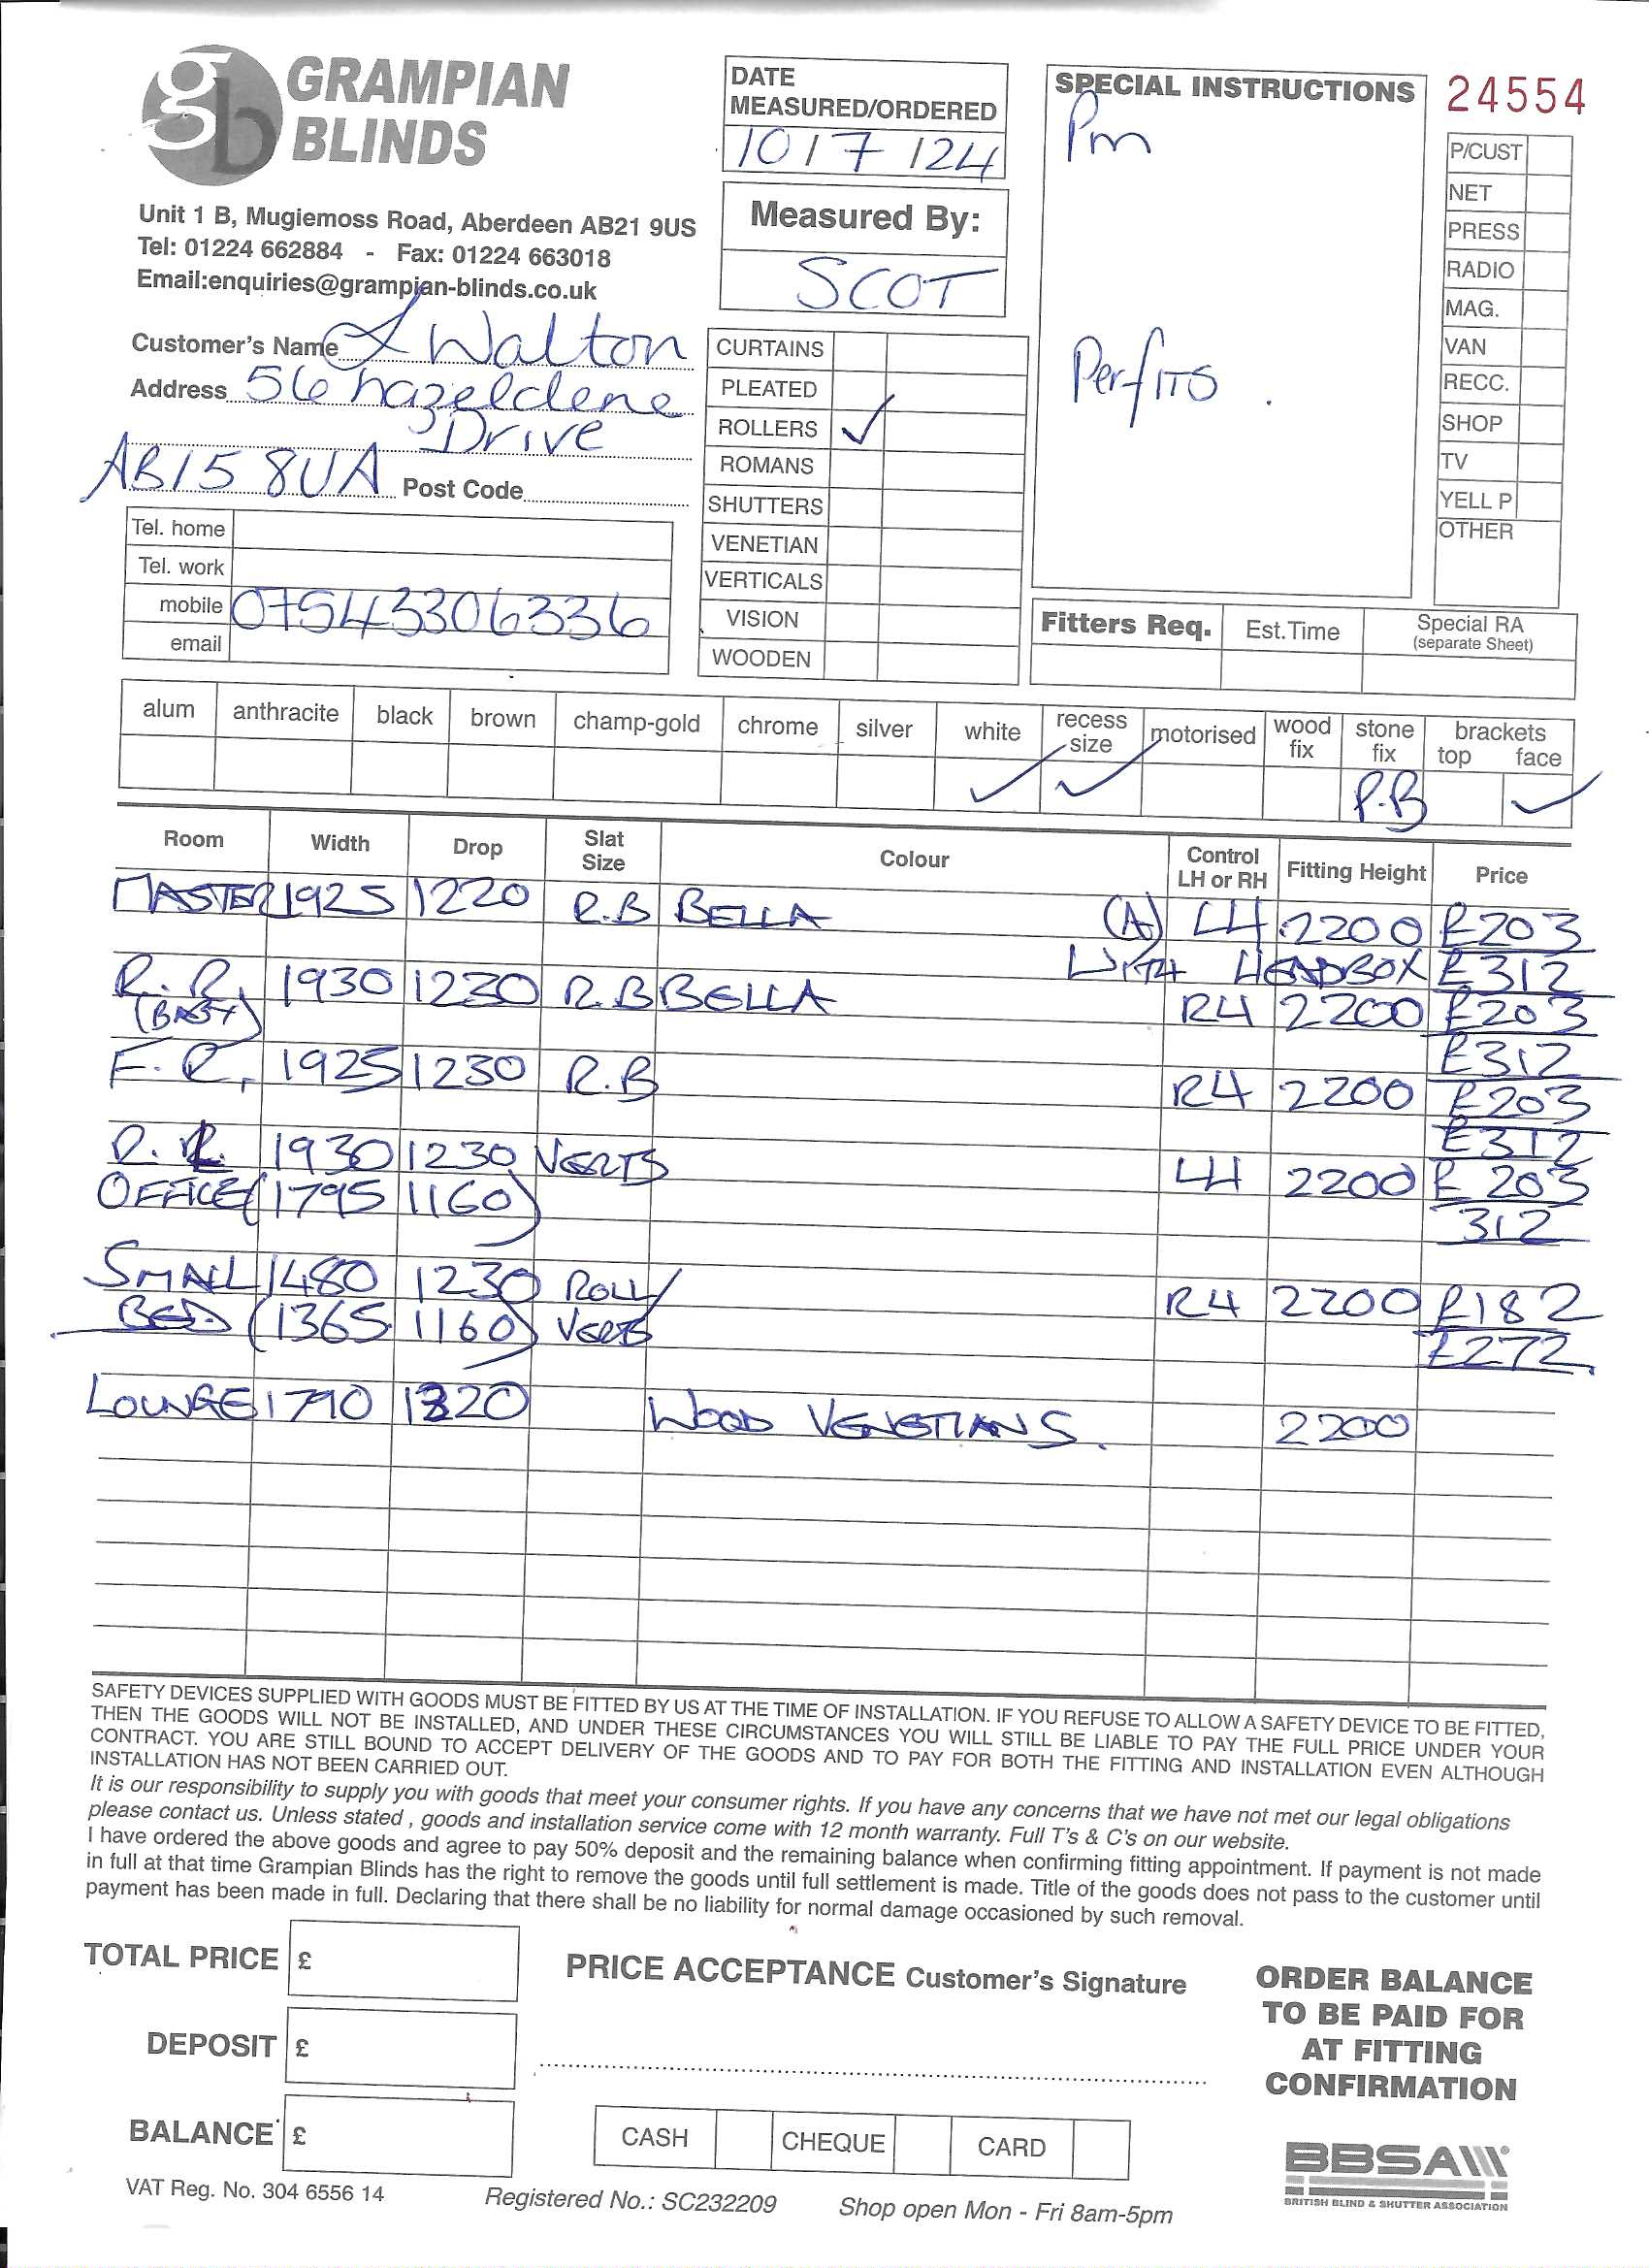 gb GRAMPIAN BLINDS
Unit 1 B, Mugiemoss Road, Aberdeen AB21 9US
Tel: 01224 662884 - Fax: 01224 663018
Email:enquiries@grampian-blinds.co.uk
DATE MEASURED/ORDERED
10/7/24
Measured By:
SCOT
SPECIAL INSTRUCTIONS
Pm
Perfits.
24554
P/CUST
NET
PRESS
RADIO
MAG.
VAN
RECC.
SHOP
TV
YELL P
OTHER
Customer's Name L Walton
Address 56 hazeldene
Drive
AB15 8UA Post Code
Tel. home
Tel. work
mobile 07543306336
email
CURTAINS
PLEATED
ROLLERS ✓
ROMANS
SHUTTERS
VENETIAN
VERTICALS
VISION
WOODEN
Fitters Req. Est.Time Special RA (separate Sheet)
alum anthracite black brown champ-gold chrome silver white recess size motorised wood fix stone fix brackets top face
✓ ✓ P.B ✓
Room Width Drop Slat Size Colour Control LH or RH Fitting Height Price
MASTER 1925 1220 R.B BELLA (A) LH 2200 £203
WITH HEADBOX £312
R.R. 1930 1230 R.B BELLA RH 2200 £203
(BABY) £312
F.R. 1925 1230 R.B RH 2200 £203
£312
1930 1230 VERTS LH 2200 £203
OFFICE (1795 1160) 312
SMALL 1480 1230 ROLL/ RH 2200 £182
BED (1365 1160) VERTS £272
LOUNGE 1790 1320 WOOD VENETIANS. 2200
SAFETY DEVICES SUPPLIED WITH GOODS MUST BE FITTED BY US AT THE TIME OF INSTALLATION. IF YOU REFUSE TO ALLOW A SAFETY DEVICE TO BE FITTED,
THEN THE GOODS WILL NOT BE INSTALLED, AND UNDER THESE CIRCUMSTANCES YOU WILL STILL BE LIABLE TO PAY THE FULL PRICE UNDER YOUR
CONTRACT. YOU ARE STILL BOUND TO ACCEPT DELIVERY OF THE GOODS AND TO PAY FOR BOTH THE FITTING AND INSTALLATION EVEN ALTHOUGH
INSTALLATION HAS NOT BEEN CARRIED OUT.
It is our responsibility to supply you with goods that meet your consumer rights. If you have any concerns that we have not met our legal obligations
please contact us. Unless stated , goods and installation service come with 12 month warranty. Full T's & C's on our website.
I have ordered the above goods and agree to pay 50% deposit and the remaining balance when confirming fitting appointment. If payment is not made
in full at that time Grampian Blinds has the right to remove the goods until full settlement is made. Title of the goods does not pass to the customer until
payment has been made in full. Declaring that there shall be no liability for normal damage occasioned by such removal.
TOTAL PRICE £
DEPOSIT £
BALANCE £
PRICE ACCEPTANCE Customer's Signature
CASH CHEQUE CARD
ORDER BALANCE
TO BE PAID FOR
AT FITTING
CONFIRMATION
BBSA
BRITISH BLIND & SHUTTER ASSOCIATION
VAT Reg. No. 304 6556 14 Registered No.: SC232209 Shop open Mon - Fri 8am-5pm